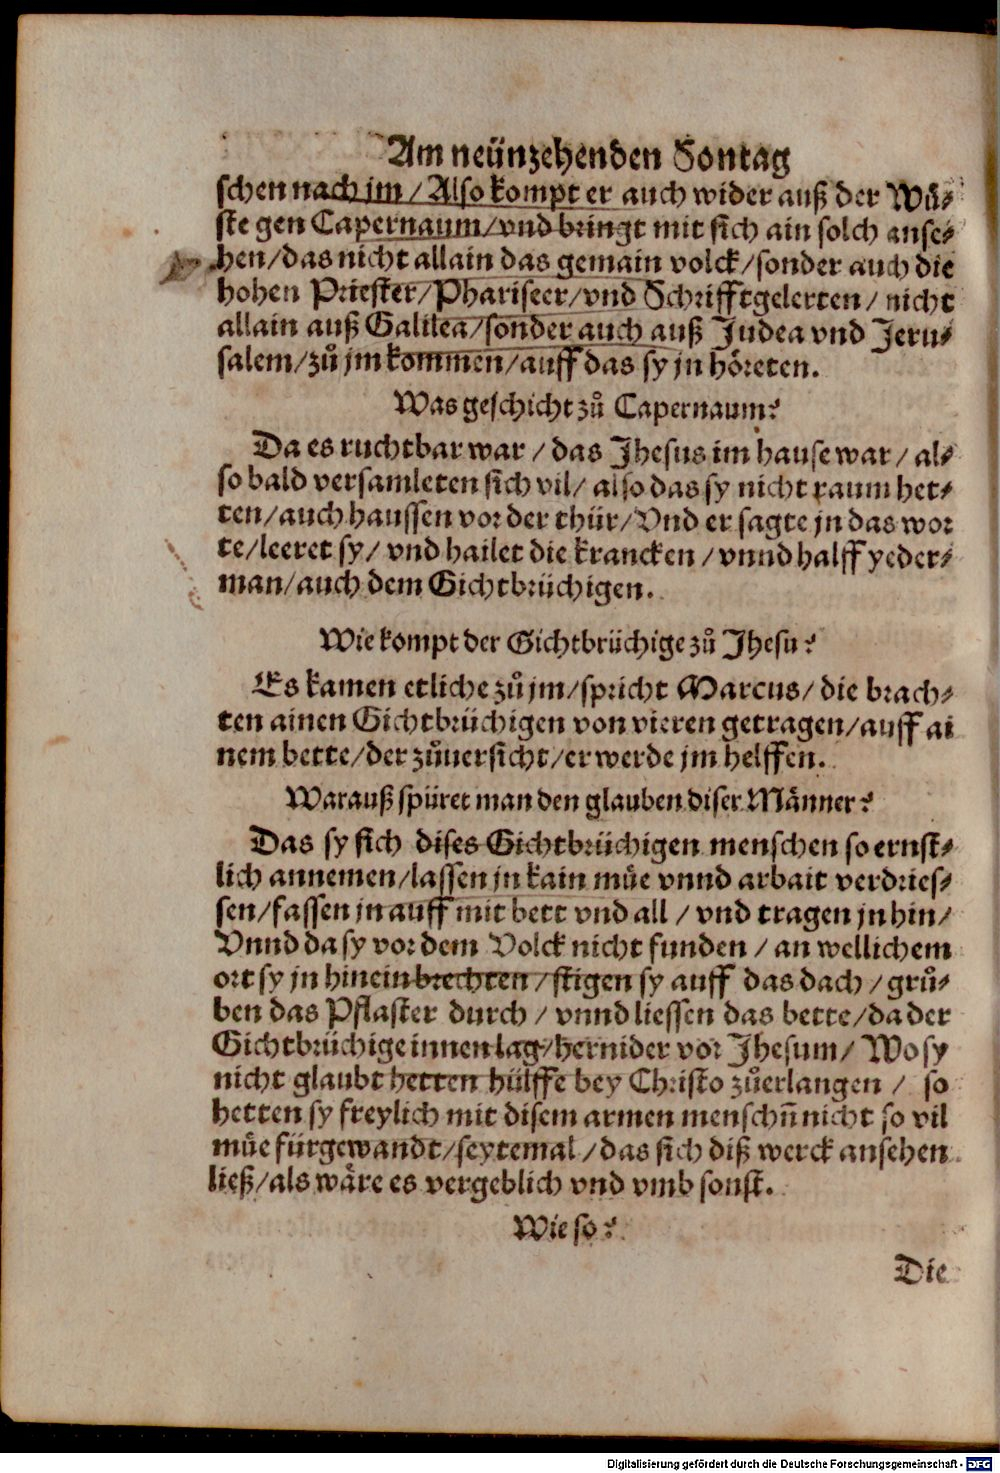 Am neünzehenden Sontag
schen nach jm / Also kompt er auch wider auß der Wü-
ste gen Capernaum/vnd bringt mit sich ain solch anse-
hen/das nicht allain das gemain volck/sonder auch die
hohen Priester/Phariseer/vnd Schrifftgelerten/ nicht
allain auß Galilea/sonder auch auß Judea vnd Jeru-
salem/zů jm kommen/auff das sy jn höreten.
Was geschicht zů Capernaum?
Da es ruchtbar war / das Jhesus im hause war/ al-
so bald versamleten sich vil/ also das sy nicht raum het-
ten/auch haussen vor der thür/Vnd er sagte jn das wor
te/leeret sy/ vnd hailet die krancken /vnnd halff yeder-
man/auch dem Gichtbrüchigen.
Wie kompt der Gichtbrüchige zů Jhesu?
Es kamen etliche zů jm/spricht Marcus/ die brach-
ten ainen Gichtbrüchigen von vieren getragen/auff ai
nem bette/der zůuersicht/er werde jm helffen.
Warauß spüret man den glauben diser Männer?
Das sy sich dises Gichtbrüchigen menschen so ernst-
lich annemen/lassen jn kain müe vnnd arbait verdries-
sen/fassen jn auff mit bett vnd all / vnd tragen jn hin/
Vnnd da sy vor dem Volck nicht funden / an wellichem
ort sy jn hinein brechten /stigen sy auff das dach /grů-
ben das Pflaster durch / vnnd liessen das bette/da der
Gichtbrüchige innen lag/hernider vor Jhesum/ Wo sy
nicht glaubt hetten hülffe bey Christo zůerlangen / so
hetten sy freylich mit disem armen menschn̄ nicht so vil
müe fürgewandt/seytemal /das sich diß werck ansehen
ließ/als wäre es vergeblich vnd vmb sonst.
Wie so?
Die
Digitalisierung gefördert durch die Deutsche Forschungsgemeinschaft - DFG